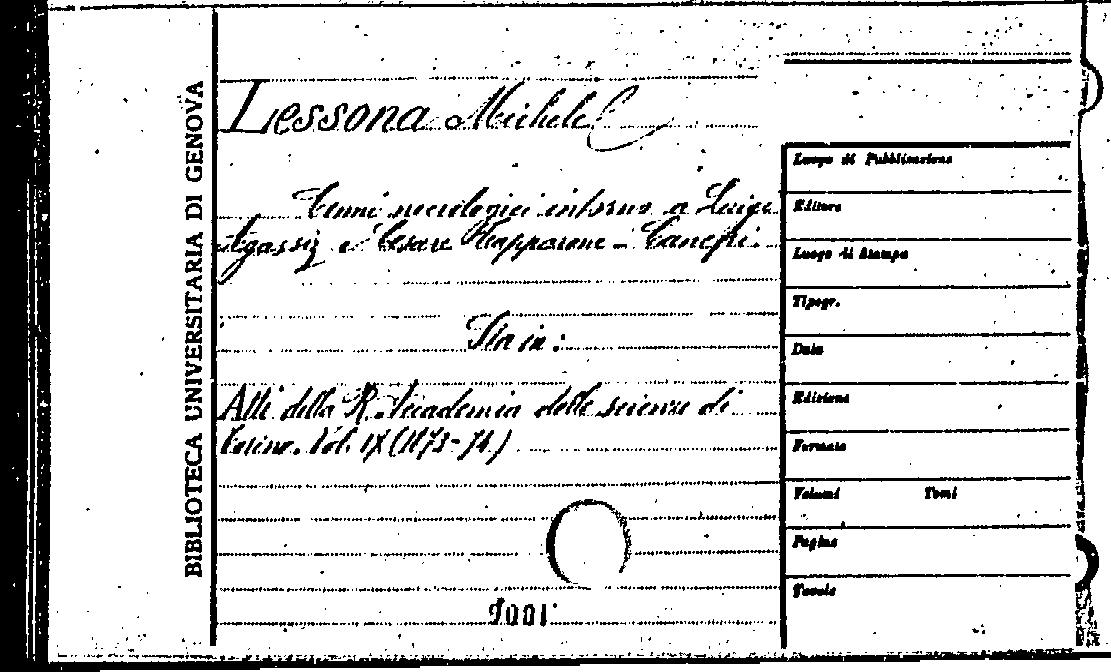 BIBLIOTECA UNIVERSITARIA DI GENOVA
Lessona Michele
Cenni necrologici intorno a Luigi
Agassiz e Cesare Tapparone - Canefri.
Sta in:
Atti della R. Accademia delle scienze di
Torino. Vol. IX (1873-74)
Luogo di Pubblicazione
Editore
Luogo di Stampa
Tipogr.
Data
Edizione
Formato
Volumi Tomi
Pagine
Tavole